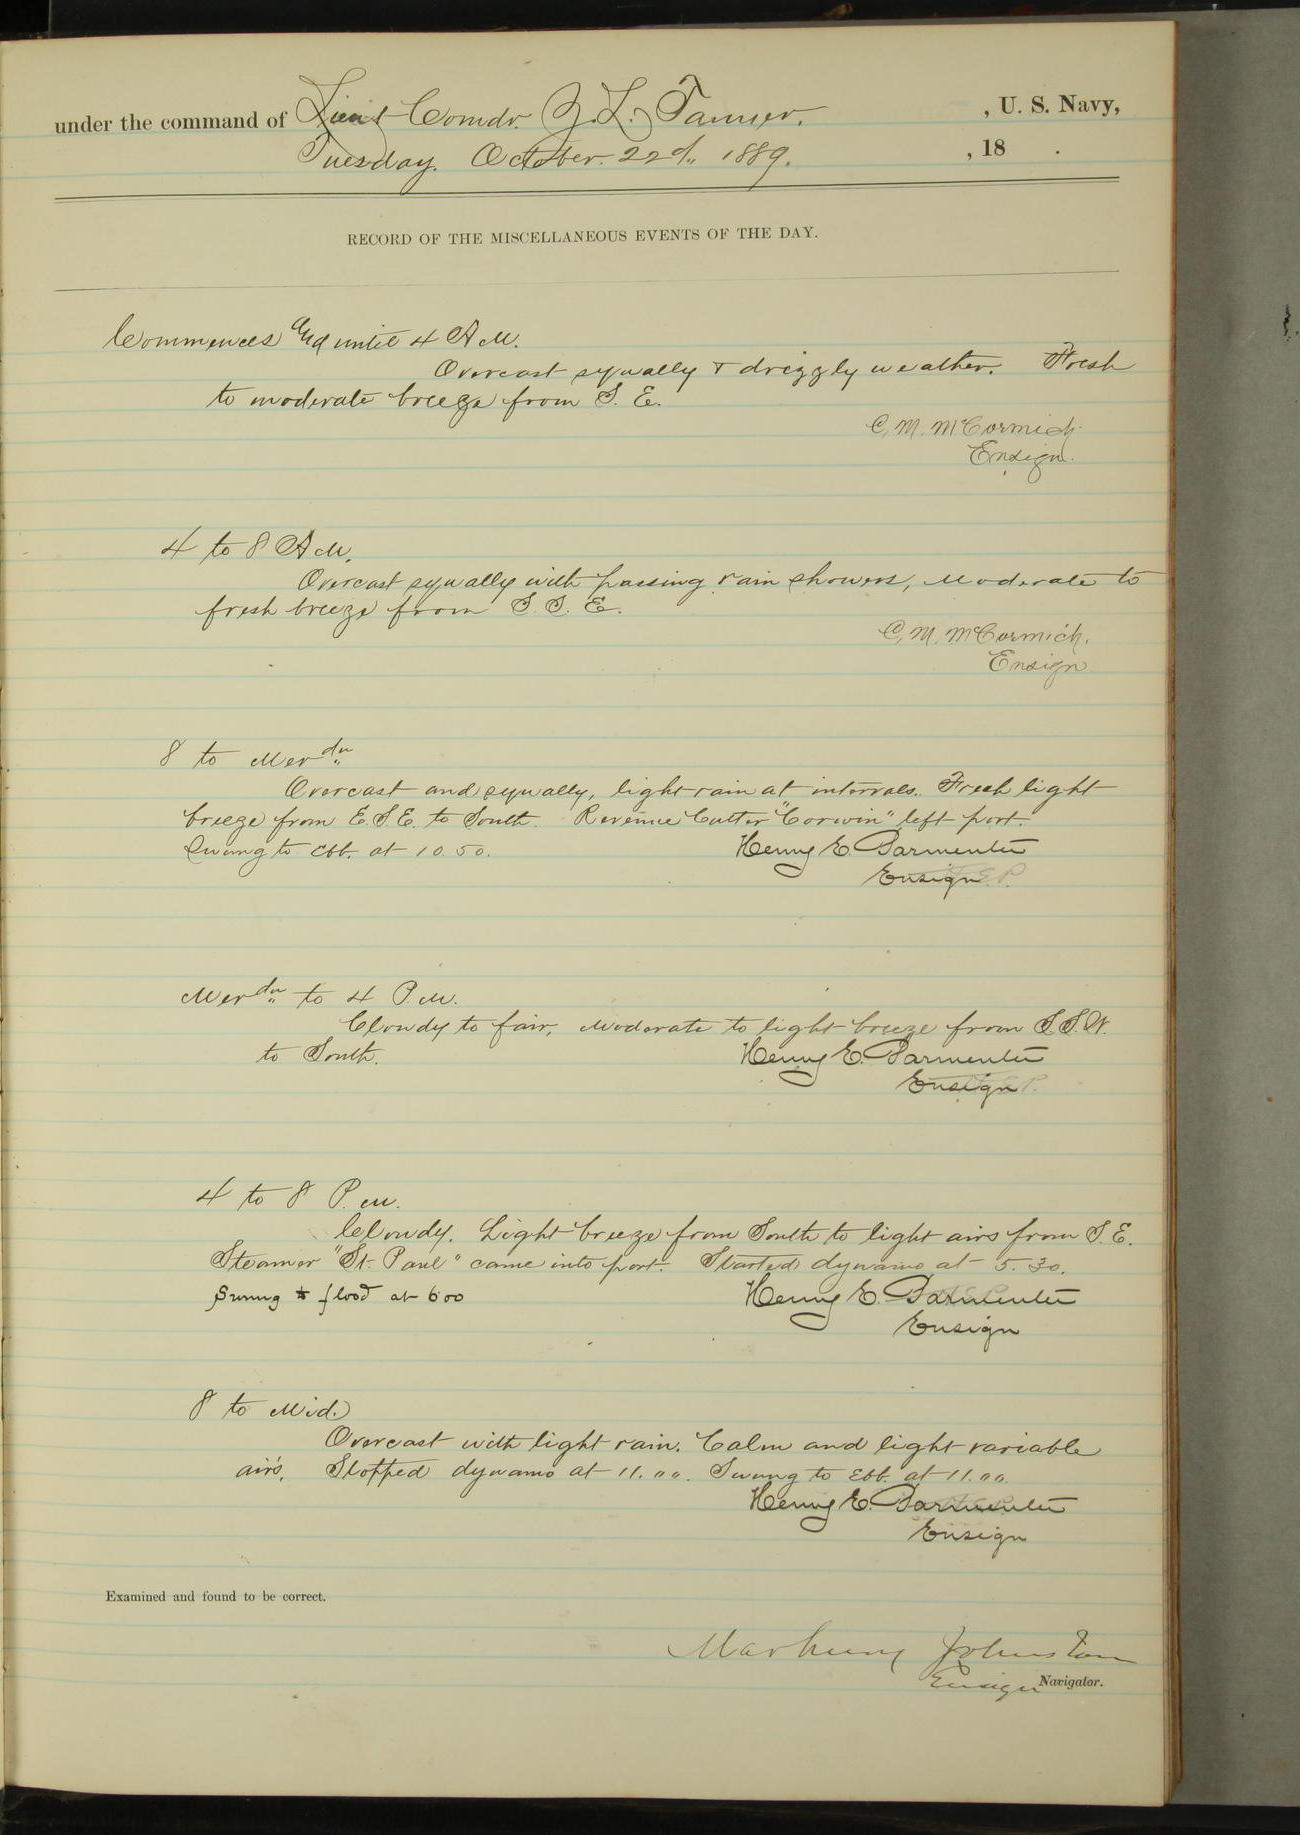 under the command of Lieut Comdr. Z. L. Tanner. , U. S. Navy,
Tuesday. October. 22d., 1889. , 18 .
RECORD OF THE MISCELLANEOUS EVENTS OF THE DAY.
Commences and until 4 A M.
Overcast squally & drizzly weather. Fresh
to moderate breeze from S. E.
C. M. McCormick.
Ensign.
4 to 8 A M.
Overcast squally with passing rain showers, Moderate to
fresh breeze from S. S. E.
C. M. McCormick.
Ensign
8 to Merdn
Overcast and squally, light rain at intervals. Fresh light
breeze from E.S.E. to South. Revenue Cutter "Corwin" left port.
Swung to ebb. at 10.50.
Henry E. Parmenter
Ensign
Merdn to 4 P. M.
Cloudy to fair, Moderate to light breeze from S.S.W.
to South.
Henry E. Parmenter
Ensign
4 to 8 P. M.
Cloudy. Light breeze from South to light airs from S.E.
Steamer "St. Paul" came into port. Started dynamo at 5.30.
Swung to flood at 6 00
Henry E. Parmenter
Ensign
8 to Mid.
Overcast with light rain. Calm and light variable
airs. Stopped dynamo at 11.00. Swung to Ebb. at 11.00.
Henry E. Parmenter
Ensign
Examined and found to be correct.
Marbury Johnston
Ensign Navigator.